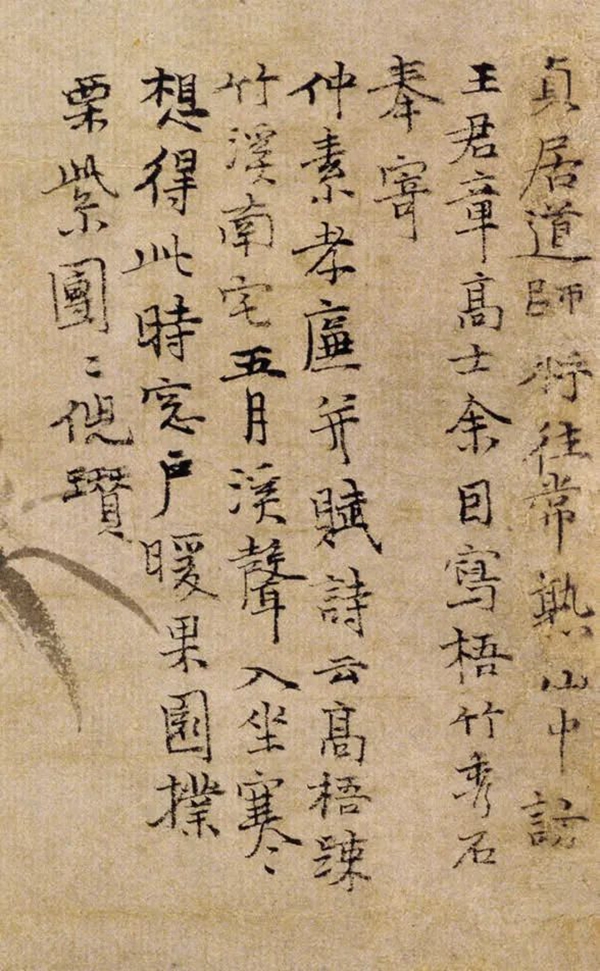 貞居道師將往常熟山中訪
王君章高士余因寫梧竹秀石
奉寄
仲素孝廉并賦詩云高梧疎
竹溪南宅五月溪聲入坐寒〻
想得此時窓戶暖果園撲
栗紫團〻倪瓚